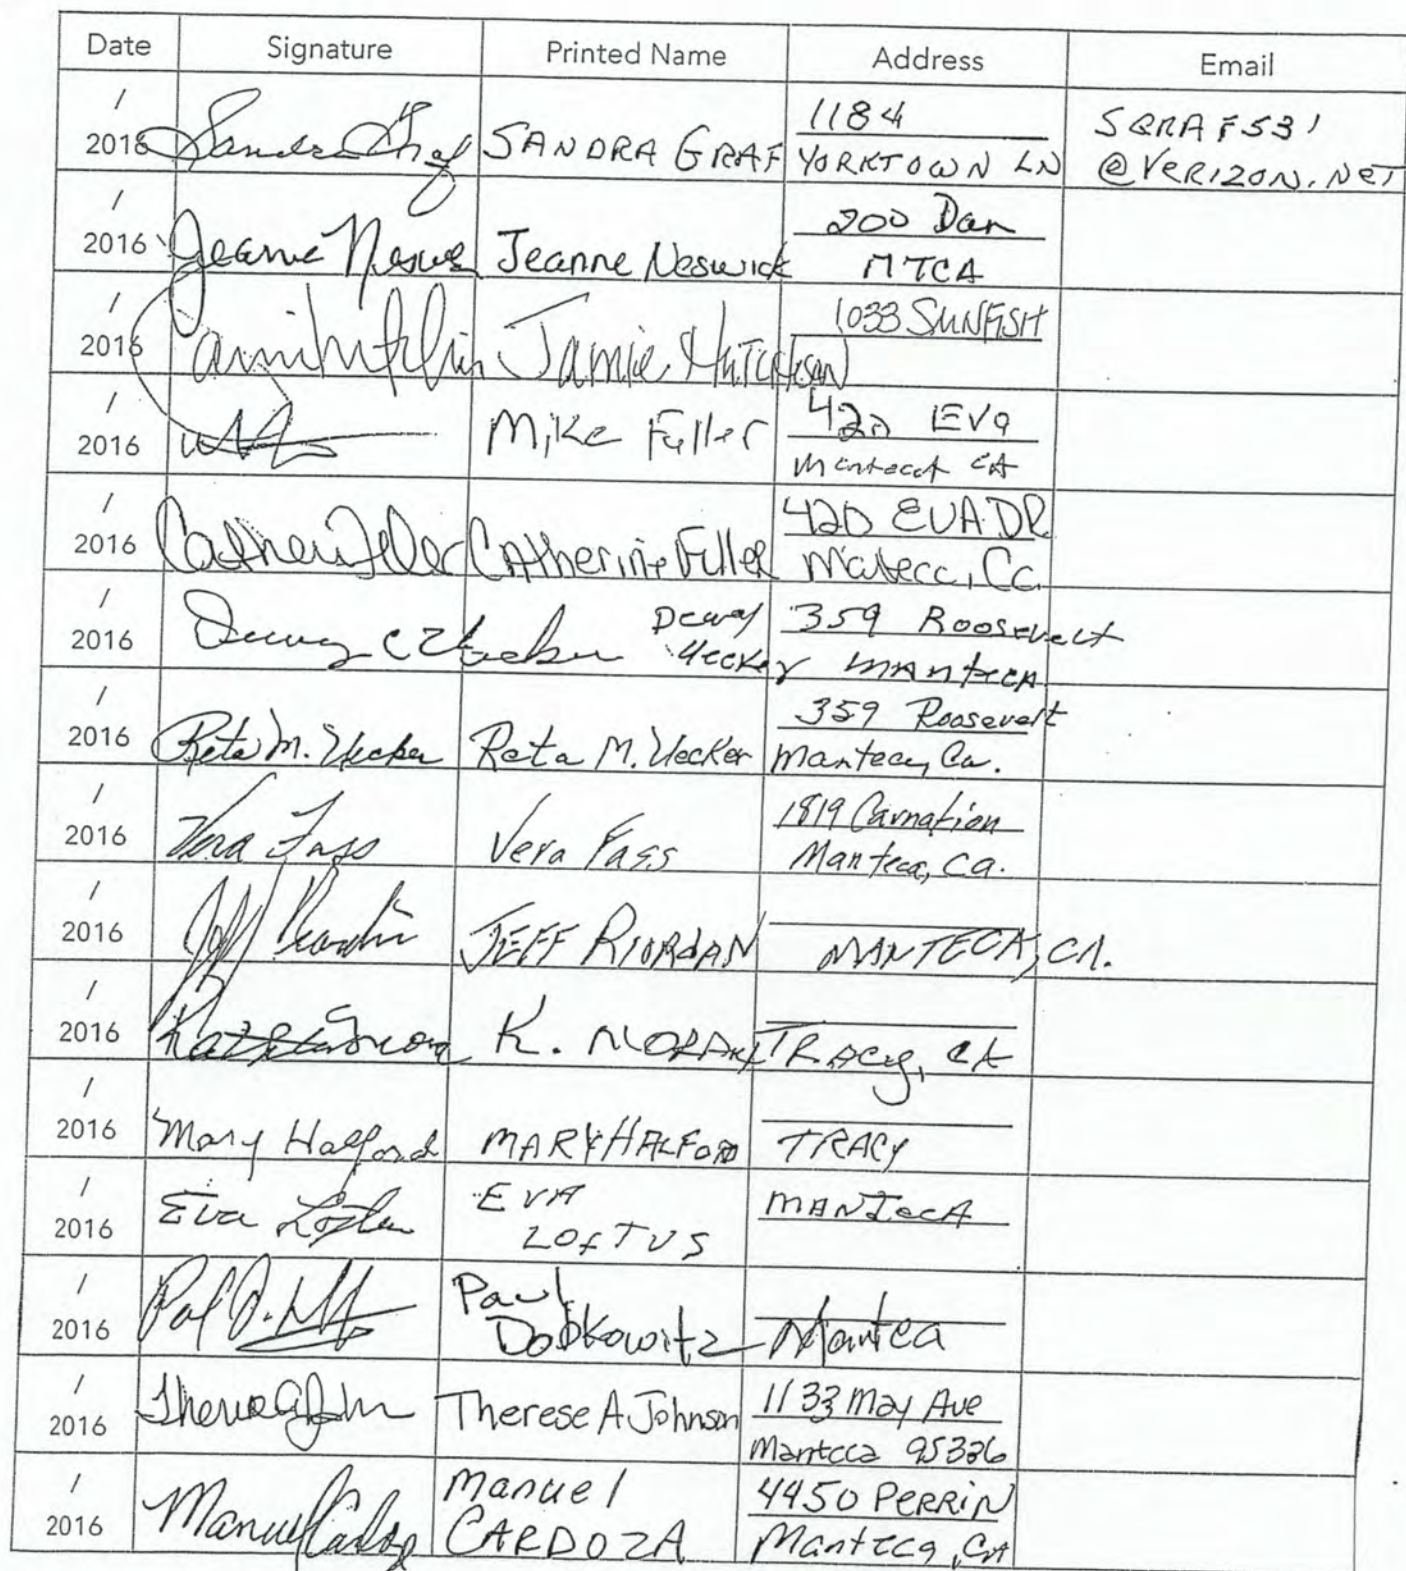 Date Signature Printed Name Address Email
/
2016 Sandra Graf SANDRA GRAF 1184
YORKTOWN LN SGRAF531
@VERIZON.NET
/
2016 Jeanne Neswick 200 Dan
MTCA
/
2016 Jamie Hutchison 1033 SUNFISH
/
2016 Mike Fuller 420 EVA
Manteca CA
/
2016 Catherine Fuller 420 EVA DR
Manteca, Ca.
/
2016 Dewey
Uecker 359 Roosevelt
MANTECA
/
2016 Reta M. Uecker Reta M. Uecker 359 Roosevelt
Manteca, Ca.
/
2016 Vera Fass Vera Fass 1819 Carnation
Manteca, Ca.
/
2016 JEFF RIORDAN MANTECA, CA.
/
2016 K. MORAN TRACY, CA
/
2016 Mary Halford MARY HALFORD TRACY
/
2016 Eva Loftus EVA
LOFTUS MANTECA
/
2016 Paul
Dobkowitz Manteca
/
2016 Therese A Johnson 1133 May Ave
Manteca 95336
/
2016 Manuel Cardoza Manuel
CARDOZA 4450 PERRIN
Manteca, CA